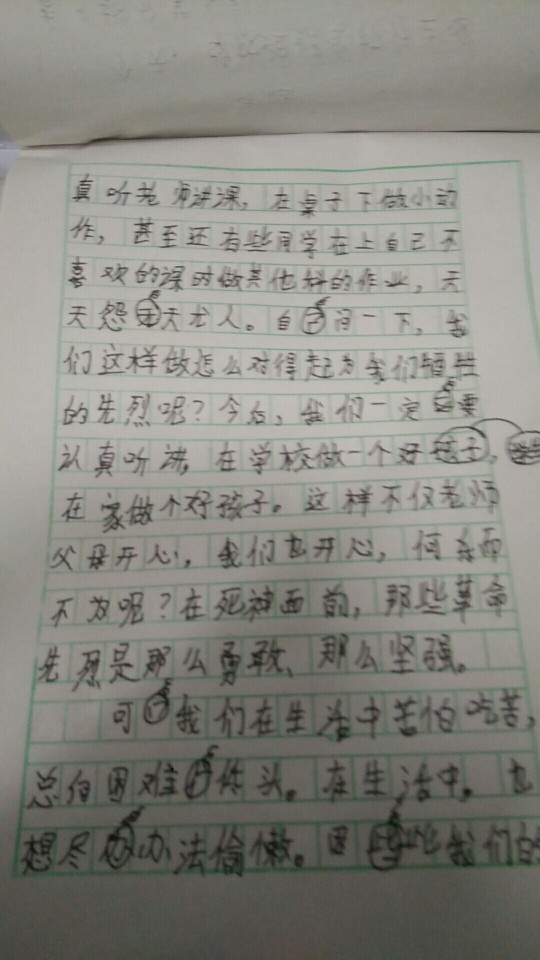 真听老师讲课，在桌子下做小动
作，甚至还有些同学在上自己不
喜欢的课时做其他科的作业，天
天怨天尤人。自问一下，我
们这样做怎么对得起为我们牺牲
的先烈呢？今后，我们一定要
认真听讲，在学校做一个好学生，
在家做个好孩子。这样不仅老师
父母开心，我们也开心，何乐而
不为呢？在死神面前，那些革命
先烈是那么勇敢、那么坚强。
可我们在生活中苦怕吃苦，
总向困难低头。在生活中，也
想尽办法偷懒。因些我们的